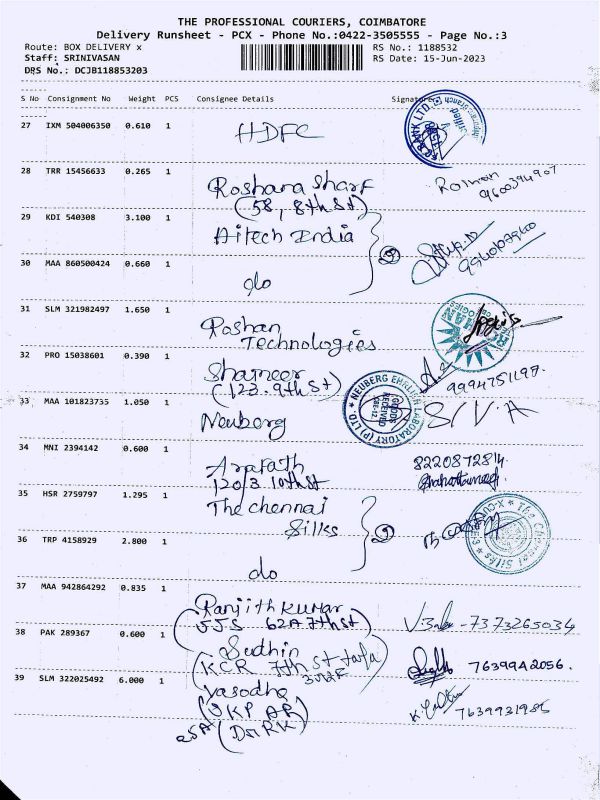 THE PROFESSIONAL COURIERS, COIMBATORE
Delivery Runsheet - PCX - Phone No.:0422-3505555 - Page No.:3
Route: BOX DELIVERY x RS No.: 1188532
Staff: SRINIVASAN RS Date: 15-Jun-2023
DRS No.: DCJB118853203
S No Consignment No Weight PCS Consignee Details Signature
27 IXM 504006350 0.610 1 HDFC
28 TRR 15456633 0.265 1 Roshana Sharf
9600394907
(58, 8th St)
29 KDI 540308 3.100 1 Aitech India
30 MAA 860500424 0.660 1 do
31 SLM 321982497 1.650 1 Roshan
Technologies
32 PRO 15038601 0.390 1 Shameer
(123.9th St) 9994751197.
33 MAA 101823735 1.050 1 Neuberg S/V.A
NEUBERG EHRLICH LABORATORY (P) LTD.
GOODS
RECEIVED
34 MNI 2394142 0.600 1 Ararath 8220872814.
120/3.10th St
35 HSR 2759797 1.295 1 The chennai
Silks
The Chennai Silks
36 TRP 4158929 2.800 1 do
37 MAA 942864292 0.835 1 Ranjith Kumar
(JJS 62A 7th St) 7373265034
38 PAK 289367 0.600 1 Sudhin
(KCR 7th St 7639942056.
39 SLM 322025492 6.000 1 Yasodha
(JKP AR) 7639931985
25A (DMRK)